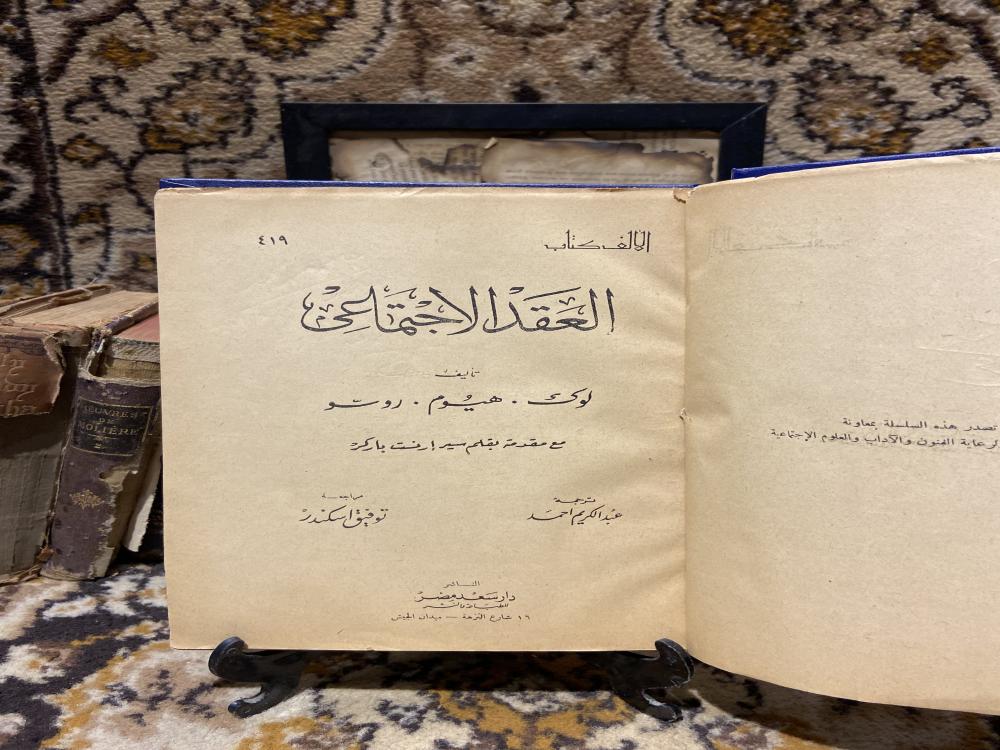 الألف كتاب
٤١٩
العقد الاجتماعي
تأليف
لوك . هيوم . روسو
مع مقدمة بقلم سير إرنست باركر
ترجمة
عبد الكريم احمد
مراجعة
توفيق اسكندر
الناشر
دار سعد مصر
للطباعة والنشر
١٦ شارع النزهة — ميدان الجيش
تصدر هذه السلسلة بمعاونة
رعاية الفنون والآداب والعلوم الإجتماعية
ŒUVRES
DE
MOLIÈRE